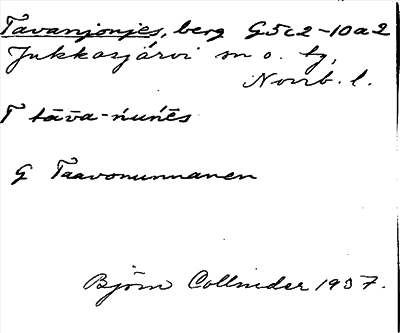 Tavanjonjes, berg G5c2-10a2
Jukkasjärvi sn o. tg,
Norrb. l.
T tāva-ńuńēs
G Taavonunnanen
Björn Collinder 1937.